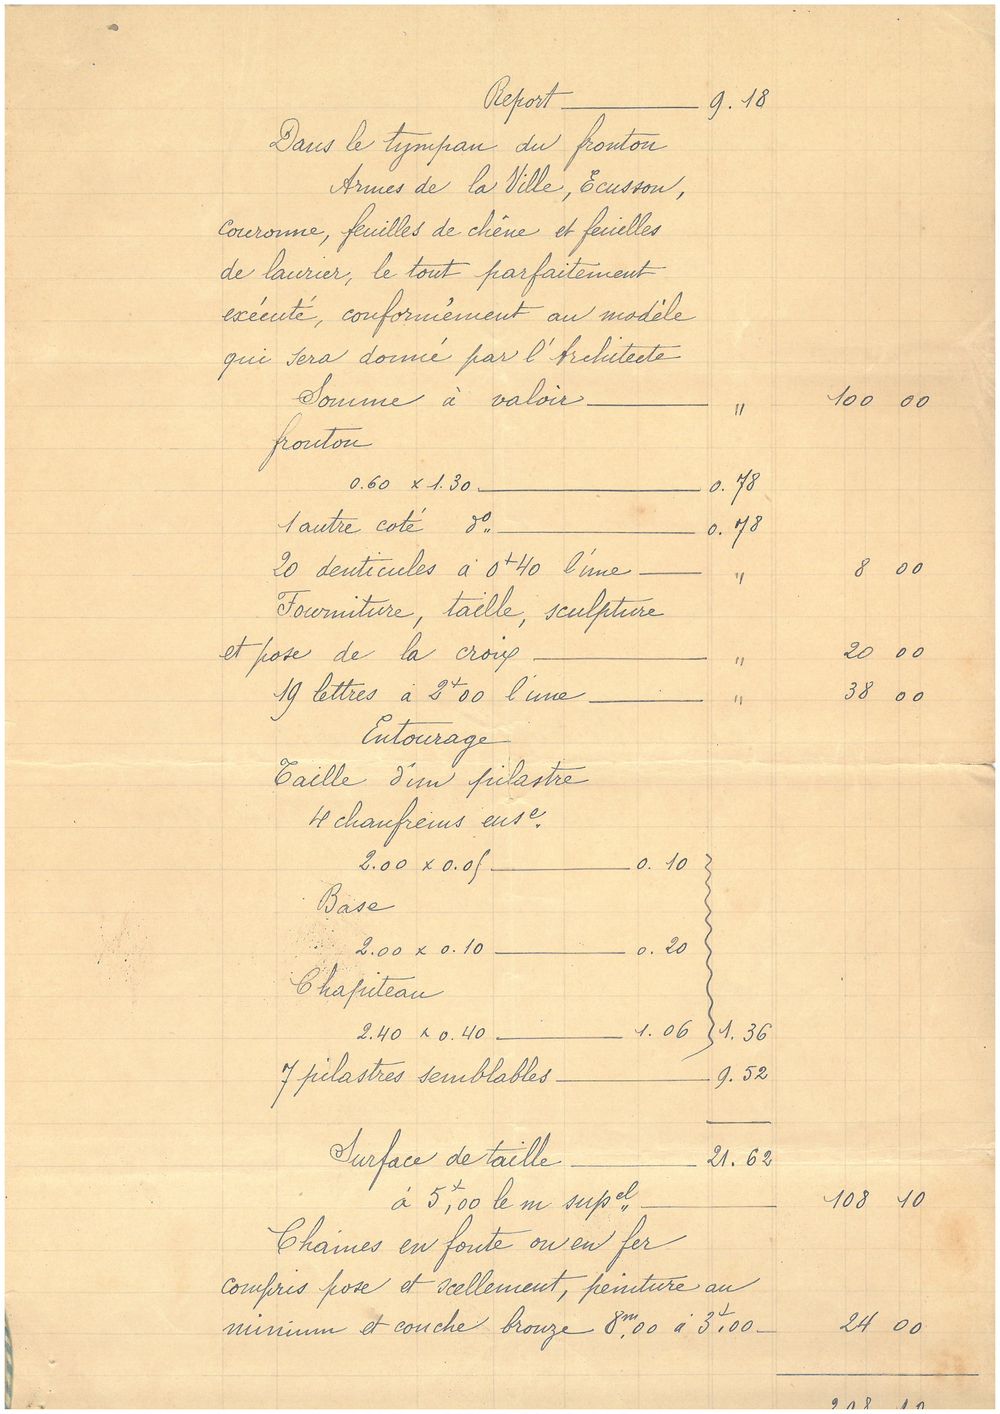 Report 9.18
Dans le tympan du fronton
Armes de la Ville, Ecusson,
couronne, feuilles de chêne et feuilles
de laurier, le tout parfaitement
exécuté, conformément au modèle
qui sera donné par l'Architecte
Somme à valoir " 100 00
fronton
0.60 x 1.30 0.78
1 autre coté dº 0.78
20 denticules à 0f40 l'une " 8 00
Fourniture, taille, sculpture
et pose de la croix " 20 00
19 lettres à 2f00 l'une " 38 00
Entourage
Taille d'un pilastre
4 chanfreins ense.
2.00 x 0.05 0.10
Base
2.00 x 0.10 0.20
Chapiteau
2.40 x 0.40 1.06 1.36
7 pilastres semblables 9.52
Surface de taille 21.62
à 5f,00 le m supel 108 10
Chaines en fonte ou en fer
compris pose et scellement, peinture au
minium et couche bronze 8m,00 à 3f,00 24 00
298 10